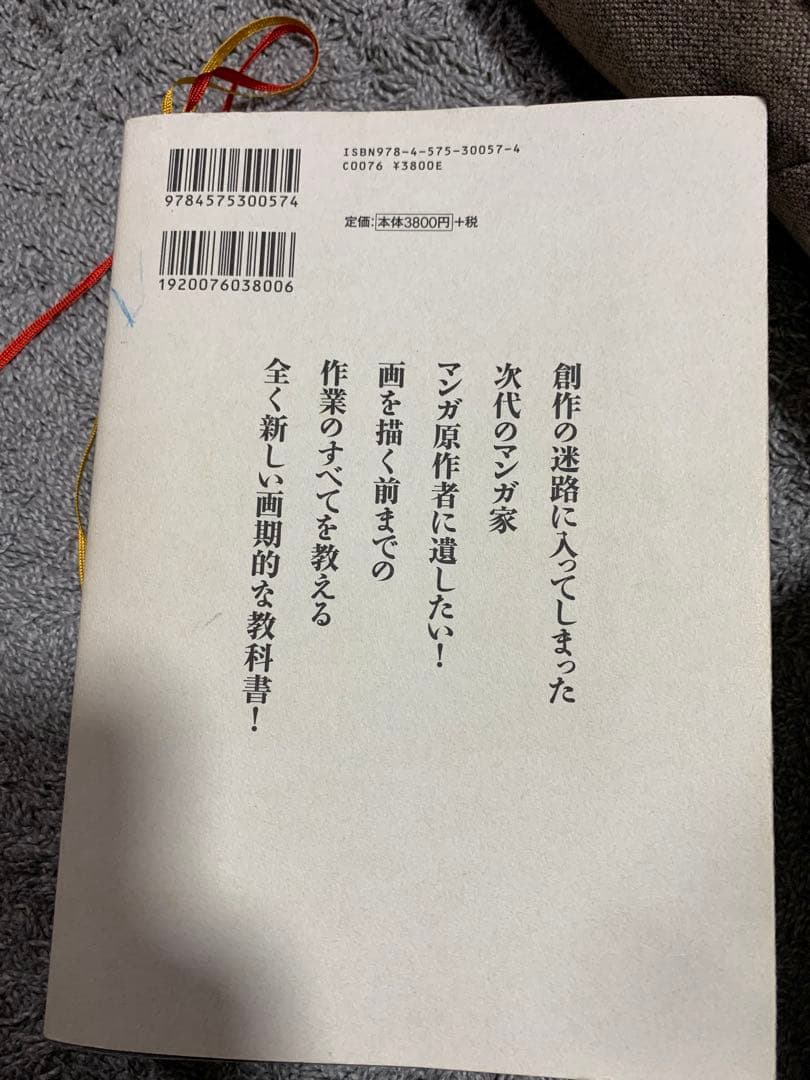 ISBN978-4-575-30057-4
C0076 ¥3800E
9784575300574
定価:本体3800円+税
1920076038006
創作の迷路に入ってしまった
次代のマンガ家
マンガ原作者に遺したい！
画を描く前までの
作業のすべてを教える
全く新しい画期的な教科書！